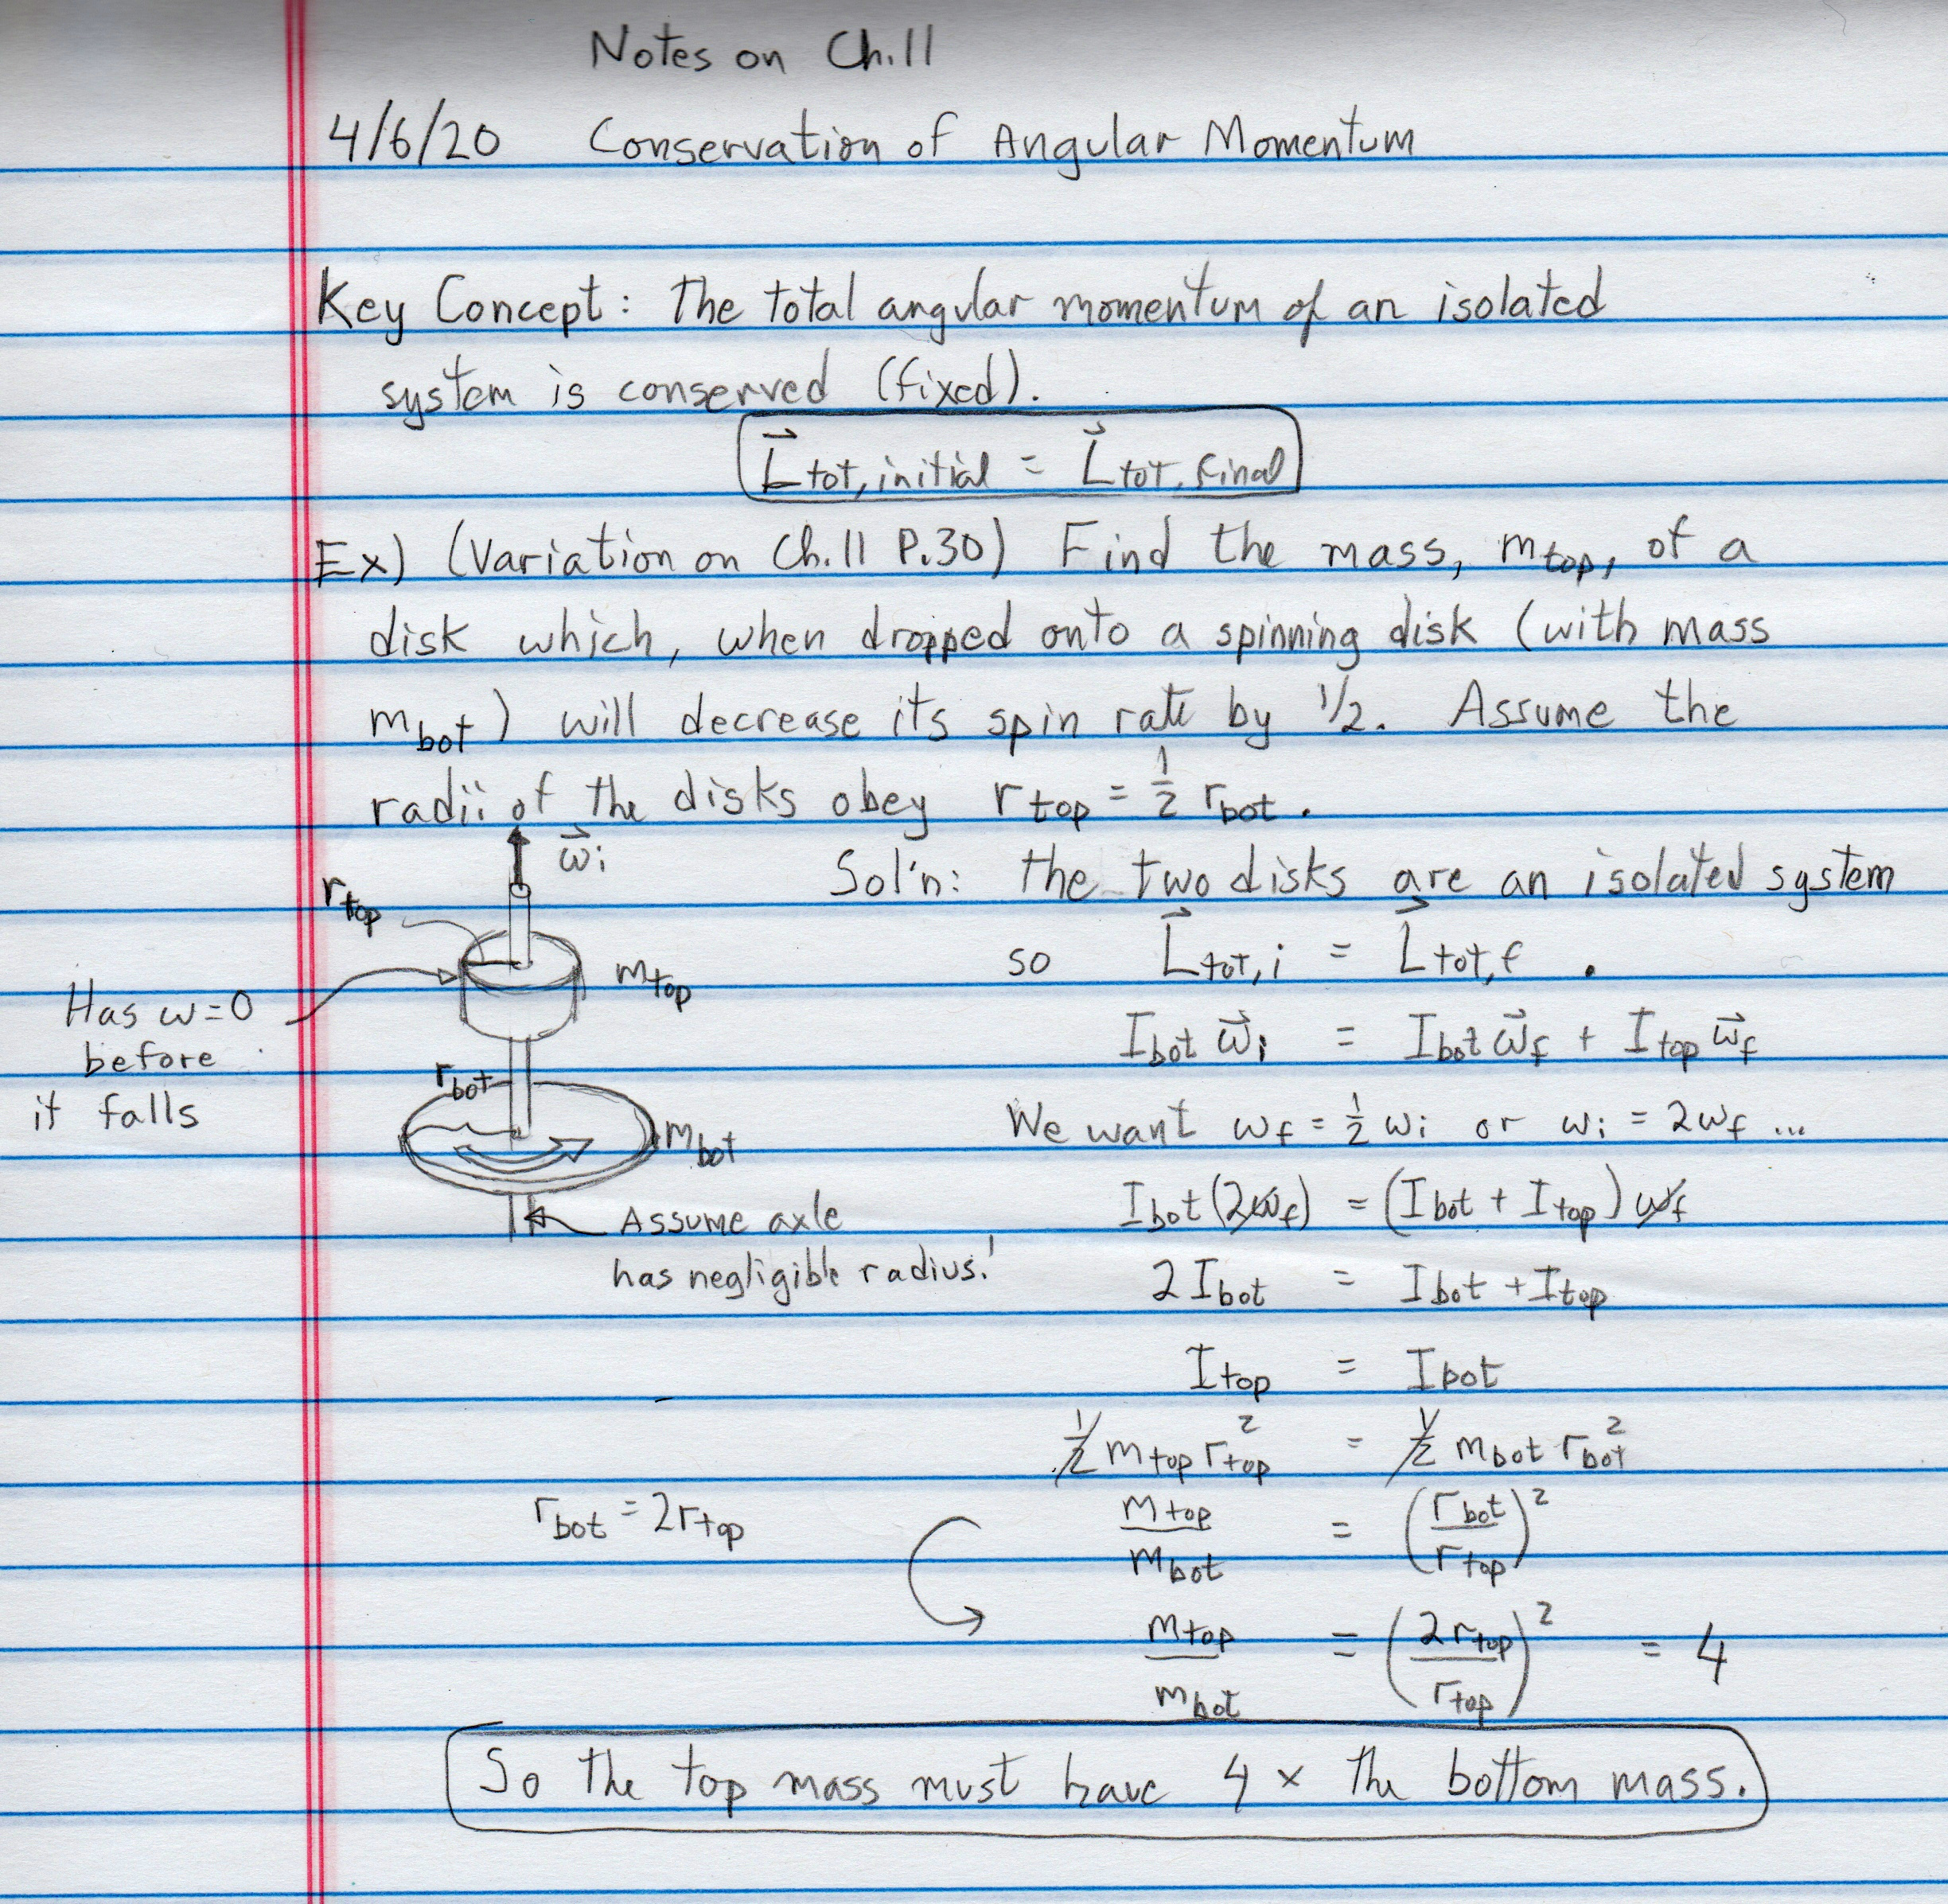 Notes on Ch.11
4/6/20 Conservation of Angular Momentum
Key Concept: The total angular momentum of an isolated
system is conserved (fixed).
L⃗tot, initial = L⃗tot, final
Ex) (Variation on Ch.11 P.30) Find the mass, mtop, of a
disk which, when dropped onto a spinning disk (with mass
mbot) will decrease its spin rate by 1/2. Assume the
radii of the disks obey rtop = 1/2 rbot.
ω⃗i
rtop
mtop
Has ω=0
before
it falls
rbot
mbot
Assume axle
has negligible radius!
Sol'n: The two disks are an isolated system
so L⃗tot, i = L⃗tot, f .
Ibot ω⃗i = Ibot ω⃗f + Itop ω⃗f
We want ωf = 1/2 ωi or ωi = 2ωf ...
Ibot (2ωf) = (Ibot + Itop) ωf
2 Ibot = Ibot + Itop
Itop = Ibot
1/2 mtop rtop² = 1/2 mbot rbot²
mtop/mbot = (rbot/rtop)²
rbot = 2rtop
mtop/mbot = (2rtop/rtop)² = 4
So the top mass must have 4 × the bottom mass.